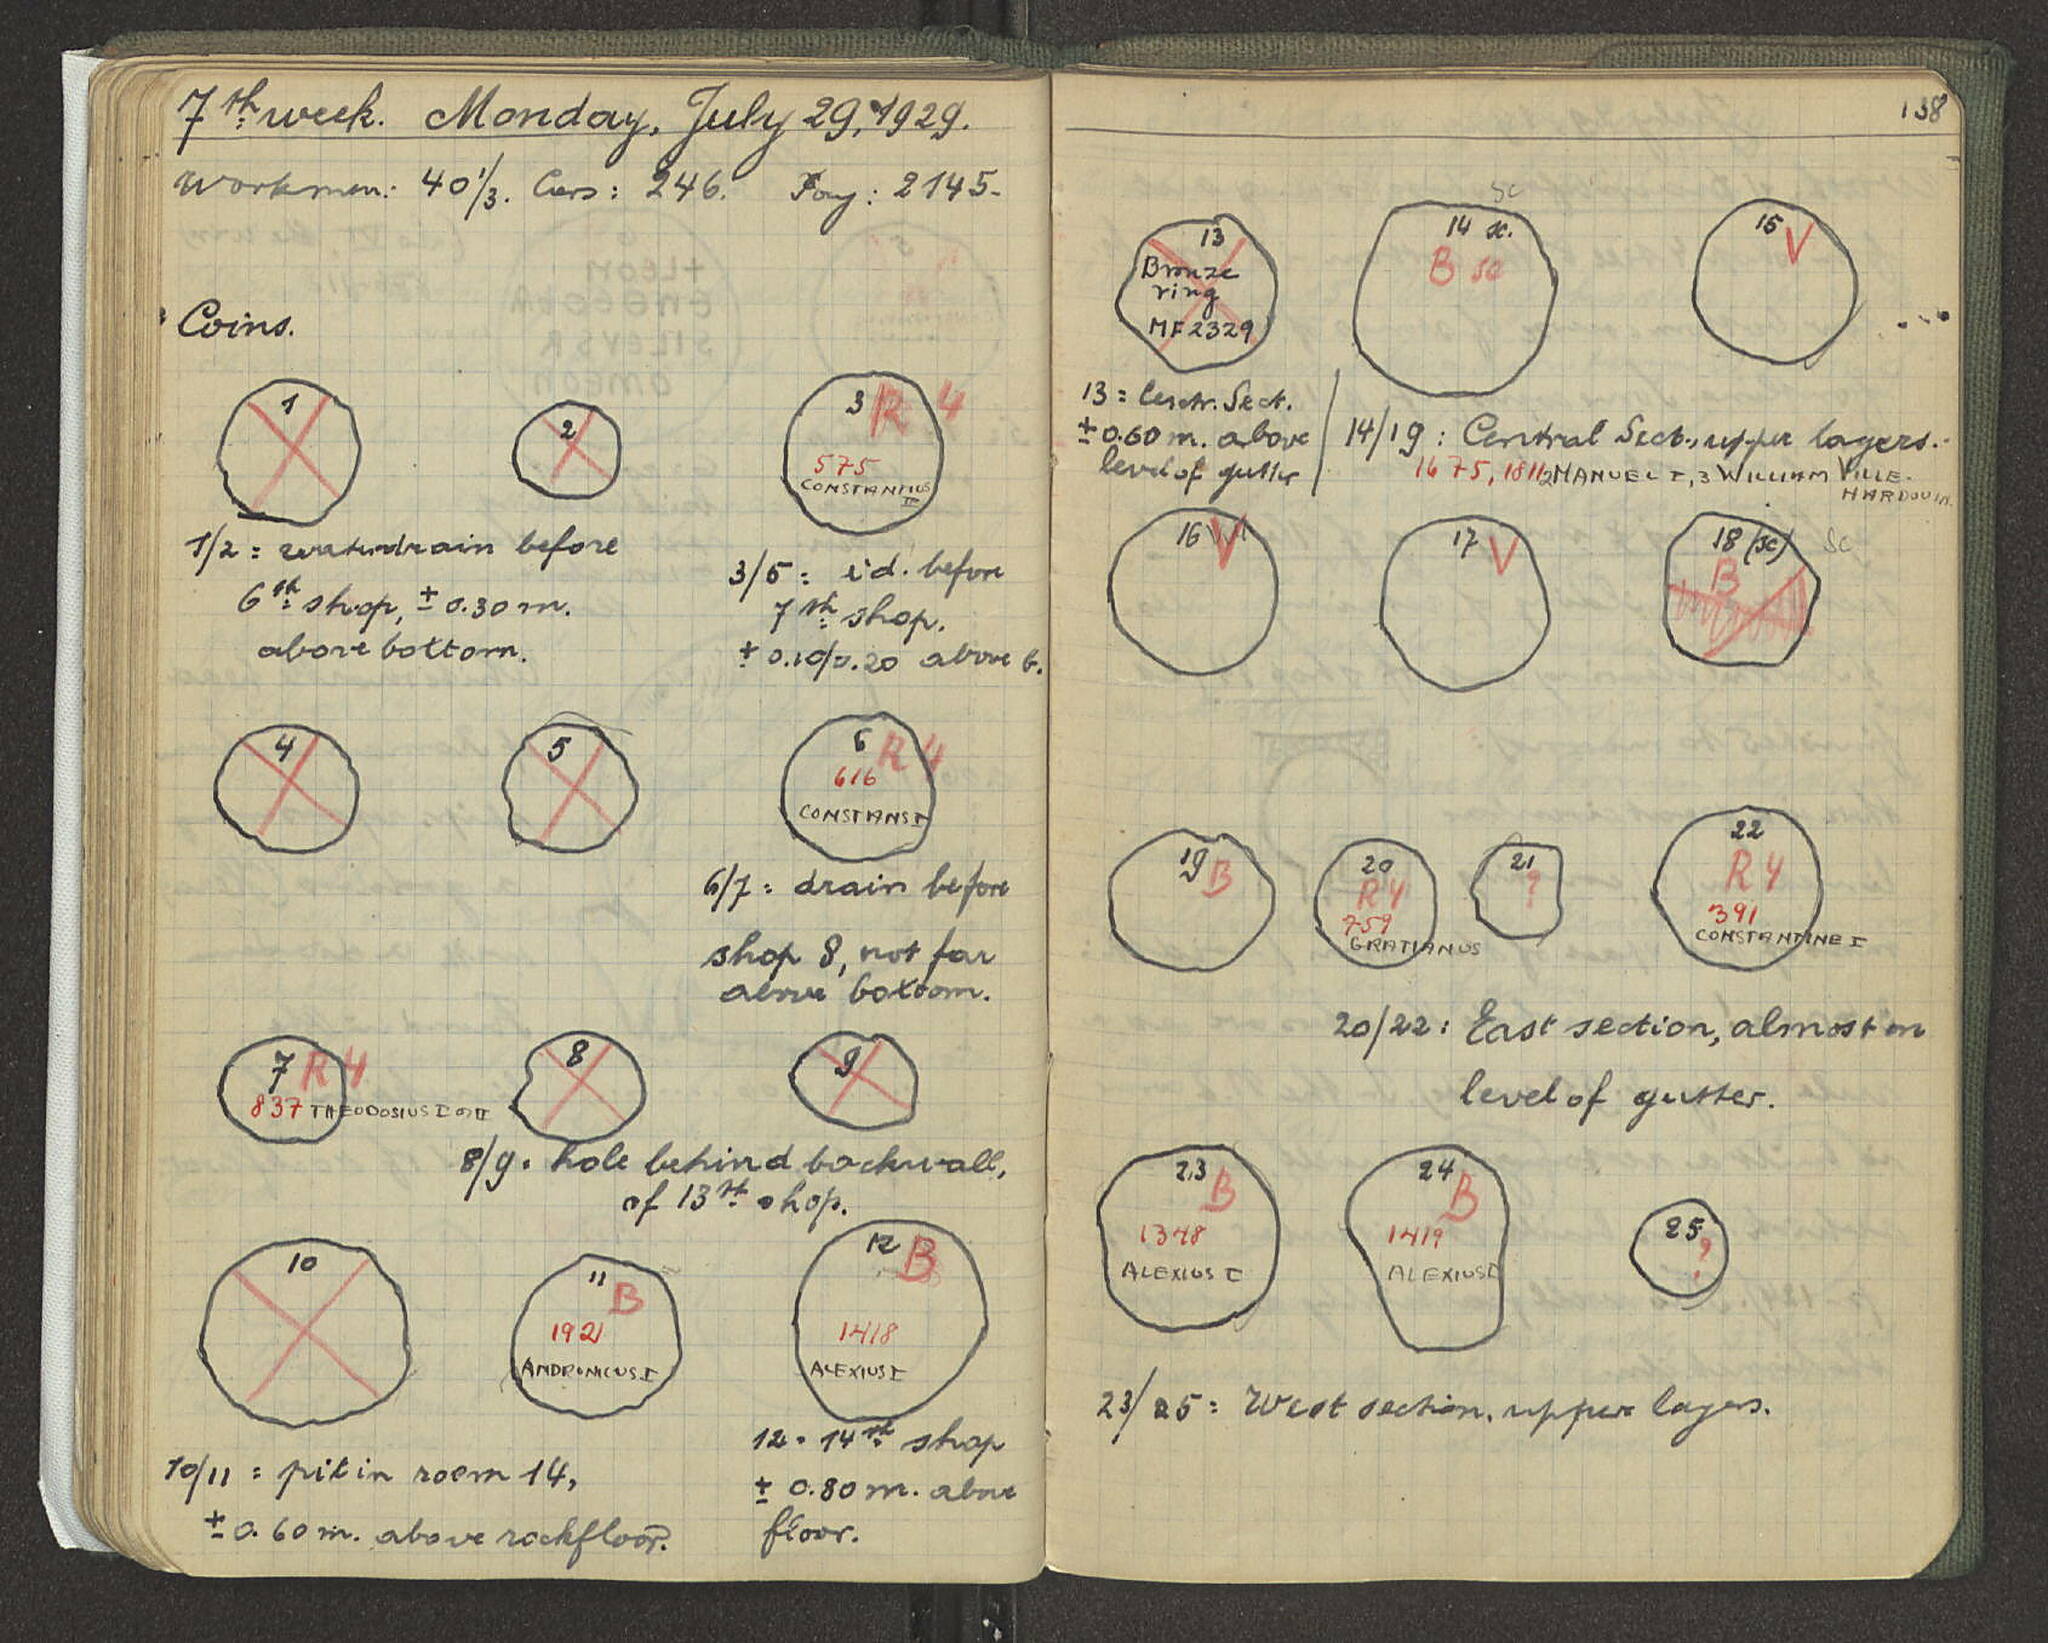 7th week. Monday, July 29, 1929.
Workmen: 40 1/3. Cars: 246. Pay: 2145-
Coins.
1
2
3 R 4
575
CONSTANTIUS
II
1/2 = waterdrain before
6th shop, ± 0.30 m.
above bottom.
3/5 = id. before
7th shop.
± 0.10/0.20 above b.
4
5
6 R 4
616
CONSTANS I
6/7 = drain before
shop 8, not far
above bottom.
7 R 4
837 THEODOSIUS I OR II
8
9
8/9 = hole behind backwall,
of 13th shop.
10
11 B
1921
ANDRONICUS I
12 B
1418
ALEXIUS I
10/11 = pit in room 14,
± 0.60 m. above rockfloor.
12 = 14th shop
± 0.80 m. above
floor.
138
13
Bronze
ring
MF 2329
sc
14 sc.
B sc
15 V
13 = Centr. Sect.
± 0.60 m. above
level of gutter
14/19 : Central Sect., upper layers.
1675, 1811 2 MANUEL I, 3 WILLIAM VILLE-
HARDOUIN
16 V
17 V
18 (sc) sc
B
19 B
20
R 4
759
GRATIANUS
21
?
22
R 4
391
CONSTANTINE I
20/22 : East section, almost on
level of gutter.
23 B
1348
ALEXIUS I
24 B
1419
ALEXIUS I
25 ?
23/25 = West section, upper layers.